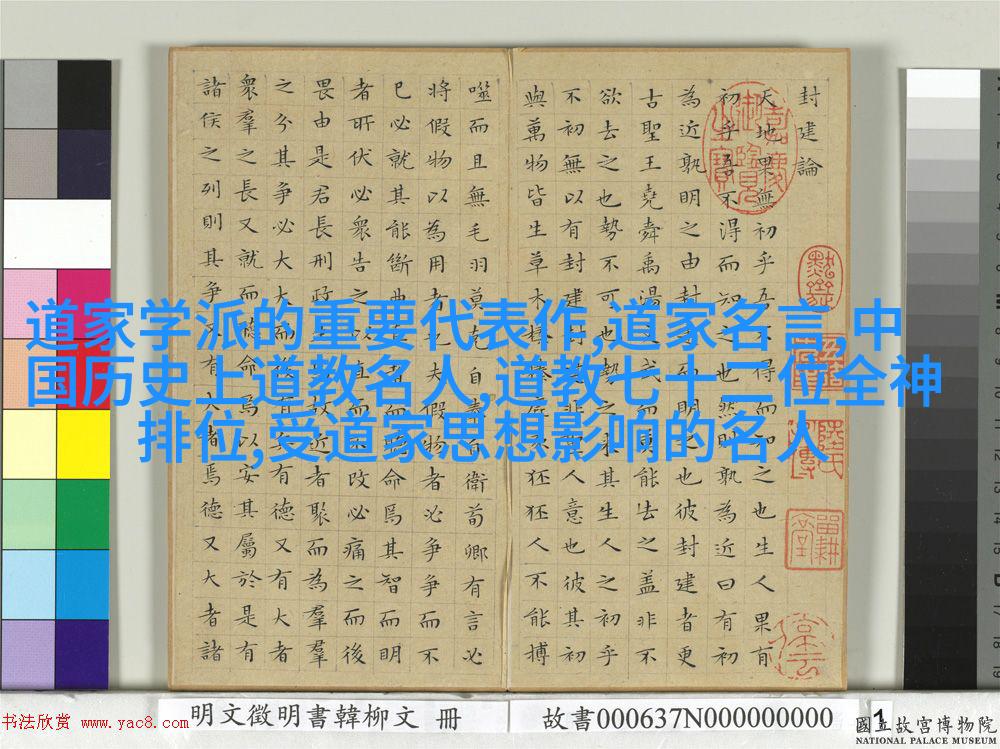 封建論
天地果無初乎吾不得而知之也生人果有
初乎吾不得而知之也然則孰為近曰有初
為近孰明之由封建而明之也彼封建者更
古聖王堯舜禹湯文武而莫能去之蓋非不
欲去之也勢不可也勢之來其生人之初乎
不初無以有封建封建非聖人意也彼其初
與萬物皆生草木榛榛鹿豕狉狉人不能搏
噬而且無毛羽莫克自奉自衛荀卿有言必
將假物以為用者也夫假物者必爭爭而不
已必就其能斷曲直者而聽命焉其智而明
者所伏必眾告之以直而不改必痛之而後
畏由是君長刑政生焉故近者聚而為羣
之分其爭必大大而後有兵有德又有大者
衆羣之長又就而聽命焉以安其屬於是有
諸侯之列則其爭又有大者焉德又大者諸
道家学派的重要代表作,道家名言,中
国历史上道教名人,道教七十二位全神
排位,受道家思想影响的名人
书法欣赏 www.yac8.com
明文徵明書韓柳文 冊
故書000637N000000000
1
國立故宮博物院
NATIONAL PALACE MUSEUM